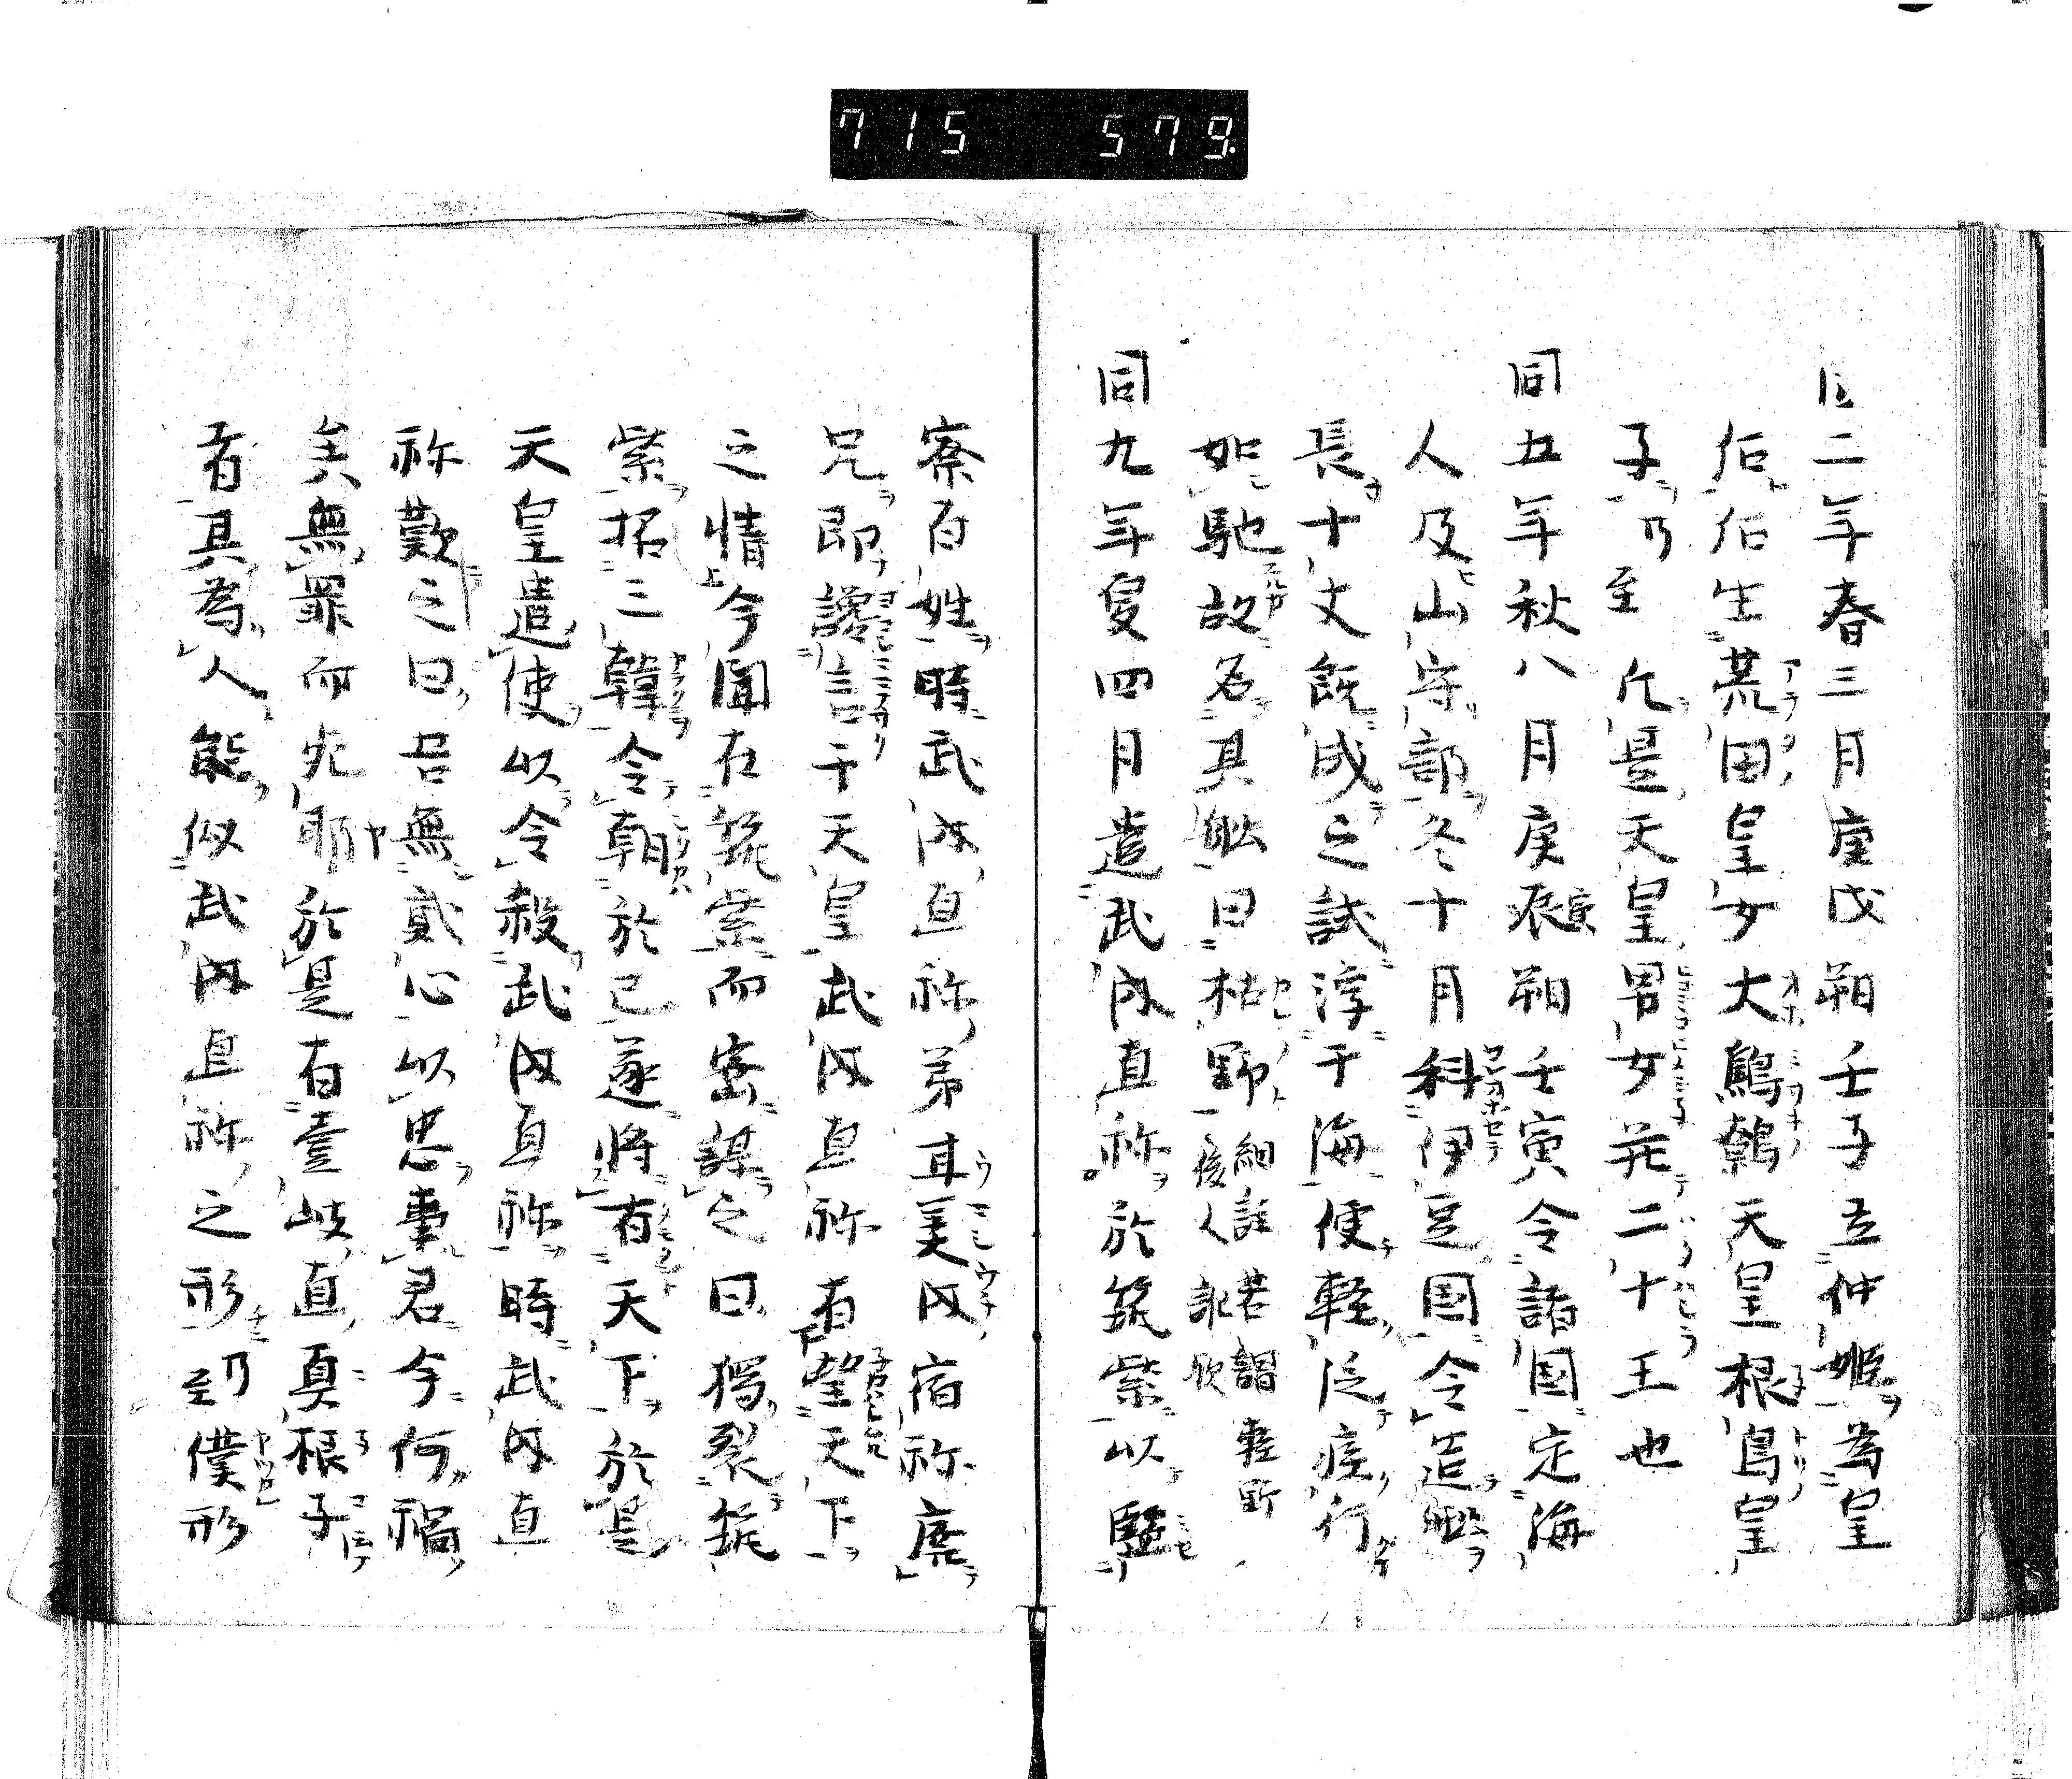 715 579
同二年春三月庚戌朔壬子立仲姫為皇
后后生荒田皇女大鷦鷯天皇根鳥皇
子乃至凡是天皇男女并二十王也
同五年秋八月庚辰朔壬寅令諸国定海
人及山守部冬十月科伊豆国令造舩
長十丈既成之試浮于海便軽泛疾行
如馳故名其舩曰枯野細註若謂軽野後人訛歟
同九年夏四月遣武内直祢於筑紫以監
察百姓時武内直祢弟甘美内宿祢廃
兄即讒言于天皇武内直祢有望天下
之情今聞在筑紫而密謀之曰獨裂筑
紫招三韓令朝於己遂将有天下於是
天皇遣使以令殺武内直祢時武内直
祢歎之曰吾無貳心以忠事君今何禍
矣無罪而死耶於是有壹岐直真根子
者其為人能似武内直祢之形乃至僕形